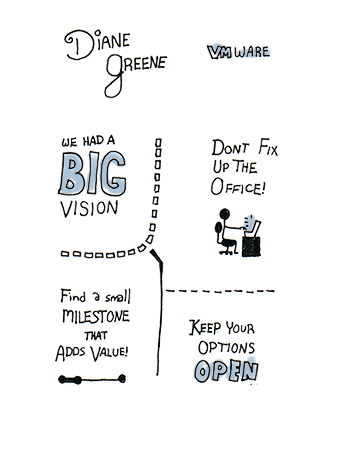 DIANE
GREENE
VMWARE
WE HAD A
BIG
VISION
DONT FIX
UP THE
OFFICE!
Find a small
MILESTONE
THAT
ADDS VALUE!
KEEP YOUR
OPTIONS
OPEN